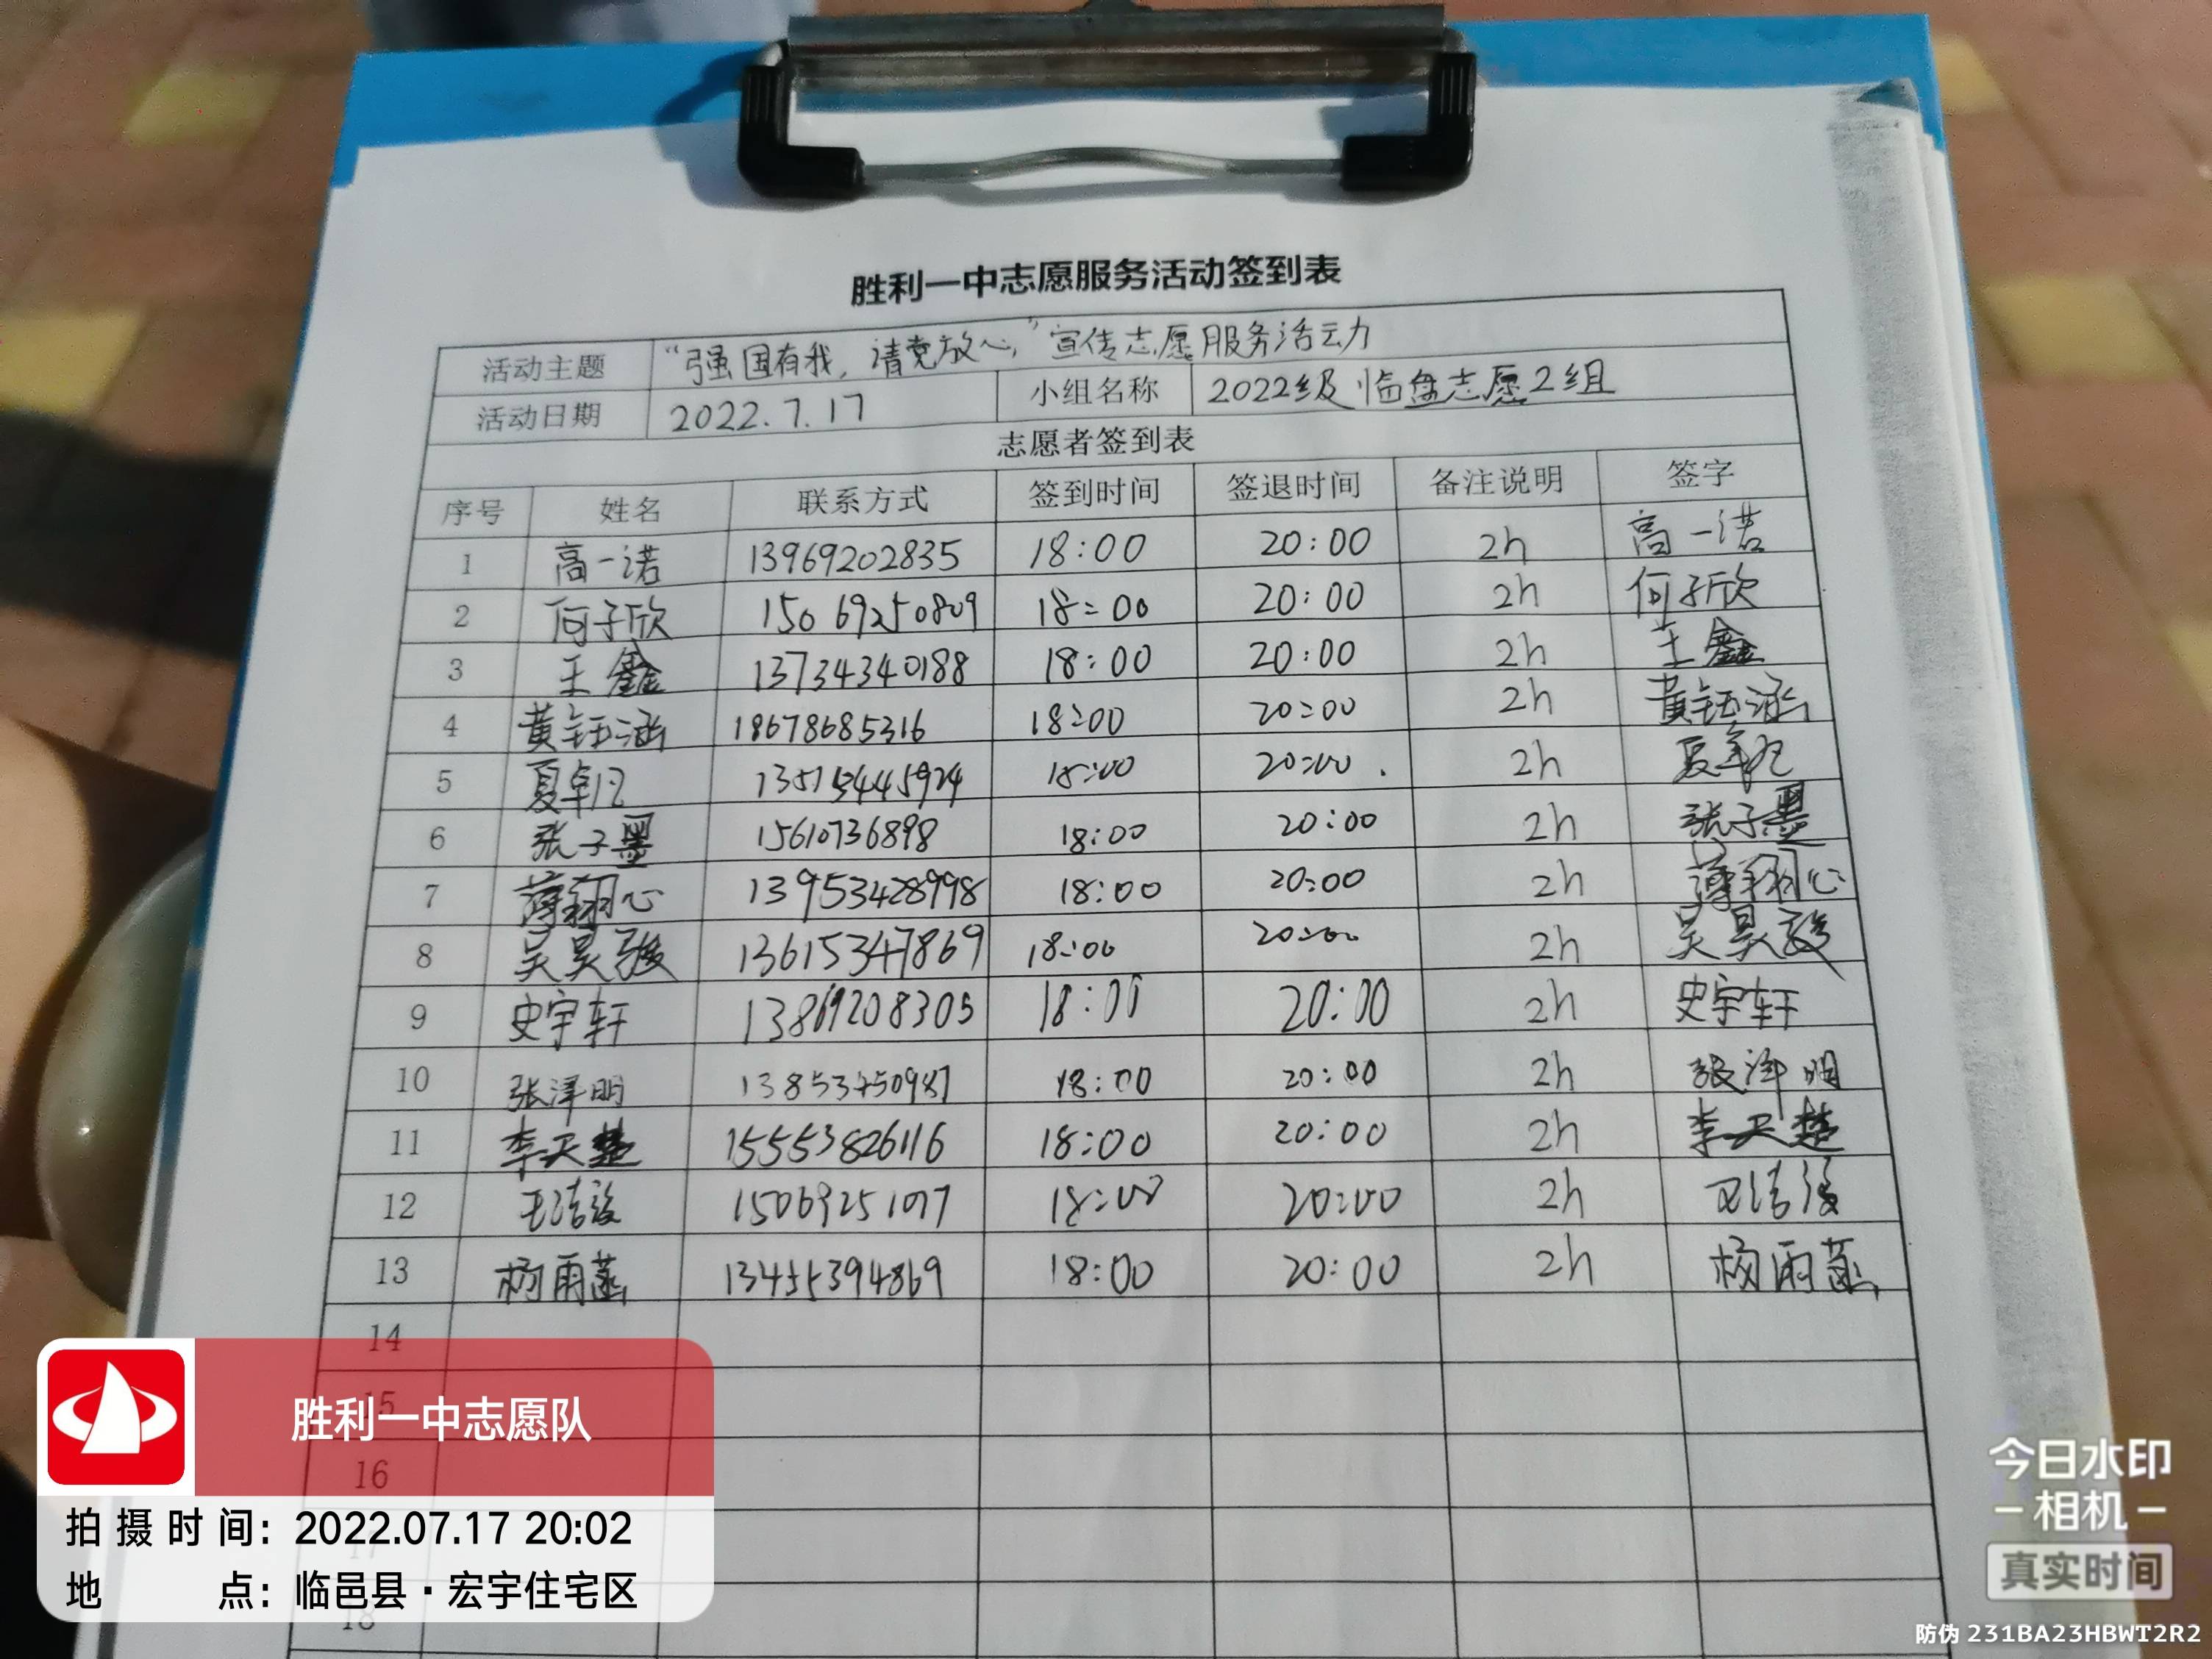 胜利一中志愿服务活动签到表
活动主题 “强国有我，请党放心”宣传志愿服务活动
活动日期 2022.7.17 小组名称 2022级临盘志愿2组
志愿者签到表
序号 姓名 联系方式 签到时间 签退时间 备注说明 签字
1 高一诺 13969202835 18:00 20:00 2h 高一诺
2 何子欣 15069250809 18:00 20:00 2h 何子欣
3 王鑫 13734340188 18:00 20:00 2h 王鑫
4 黄钰涵 18678685316 18:00 20:00 2h 黄钰涵
5 夏卓凡 18:00 20:00 2h 夏卓凡
6 张子墨 15610736898 18:00 20:00 2h 张子墨
7 薄翔心 13953428998 18:00 20:00 2h 薄翔心
8 吴昊骏 13615347869 18:00 20:00 2h 吴昊骏
9 史宇轩 13869208305 18:00 20:00 2h 史宇轩
10 张泽明 13853450987 18:00 20:00 2h 张泽明
11 李天楚 15553826116 18:00 20:00 2h 李天楚
12 18:00 20:00 2h
13 杨雨菡 13455394869 18:00 20:00 2h 杨雨菡
14
15
16
17
18
胜利一中志愿队
拍摄时间：2022.07.17 20:02
地点：临邑县·宏宇住宅区
今日水印
相机
真实时间
防伪 231BA23HBWT2R2